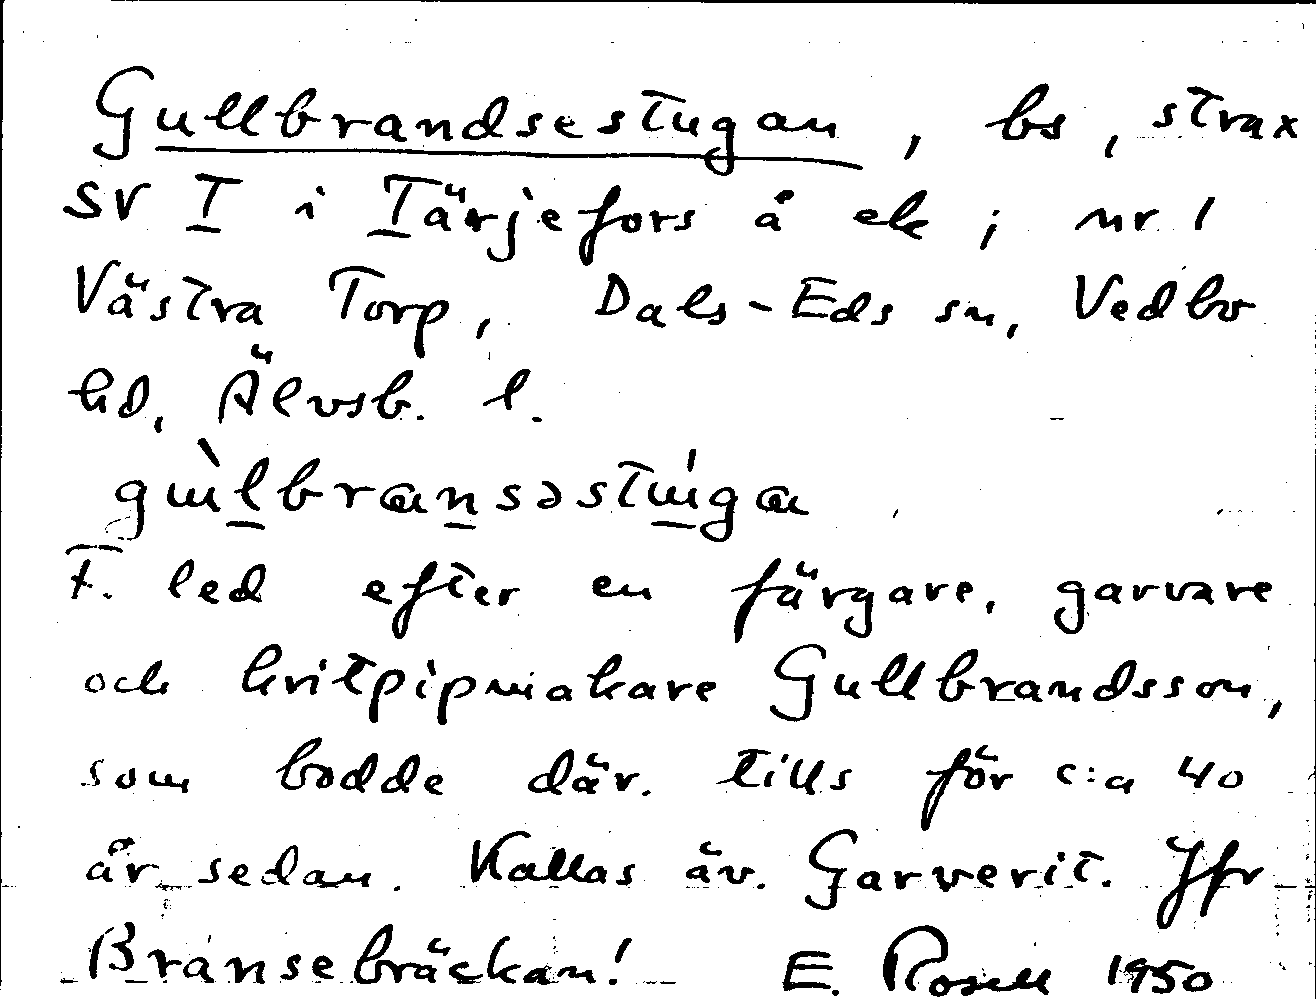 Gullbrandsestugan, bs, strax
SV T i Tärjefors å ek; nr 1
Västra Torp, Dals-Eds sn, Vedbo
hd, Älvsb. l.
gùlbransəstúga
F. led efter en färgare, garvare
och kritpipmakare Gullbrandsson,
som bodde där. tills för c:a 40
år sedan. Kallas äv. Garverit. Jfr
Bransebräckan! E. Rosell 1950